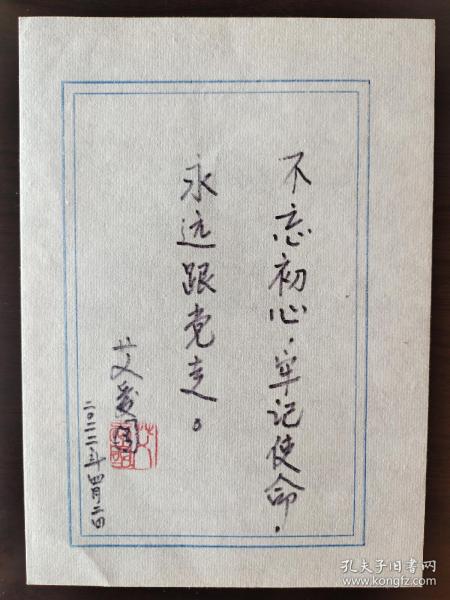 不忘初心,牢记使命,
永远跟党走。
艾爱国
二〇二二年四月
孔夫子旧书网
www.kongfz.com